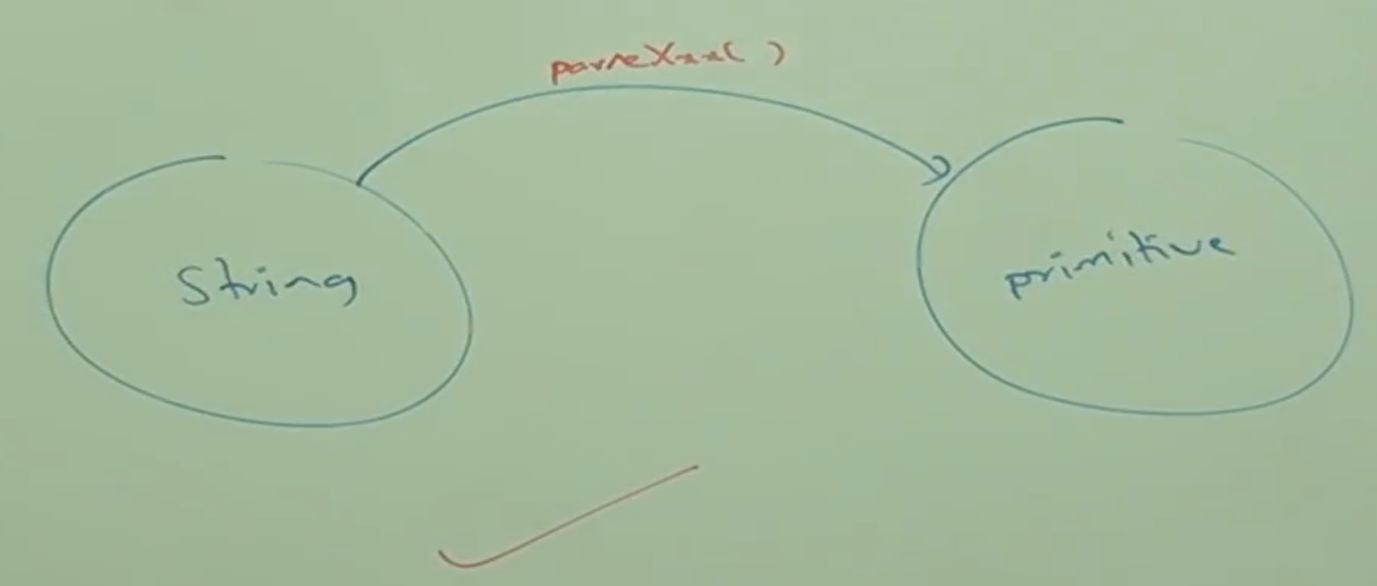 parseXxx( )
String
primitive